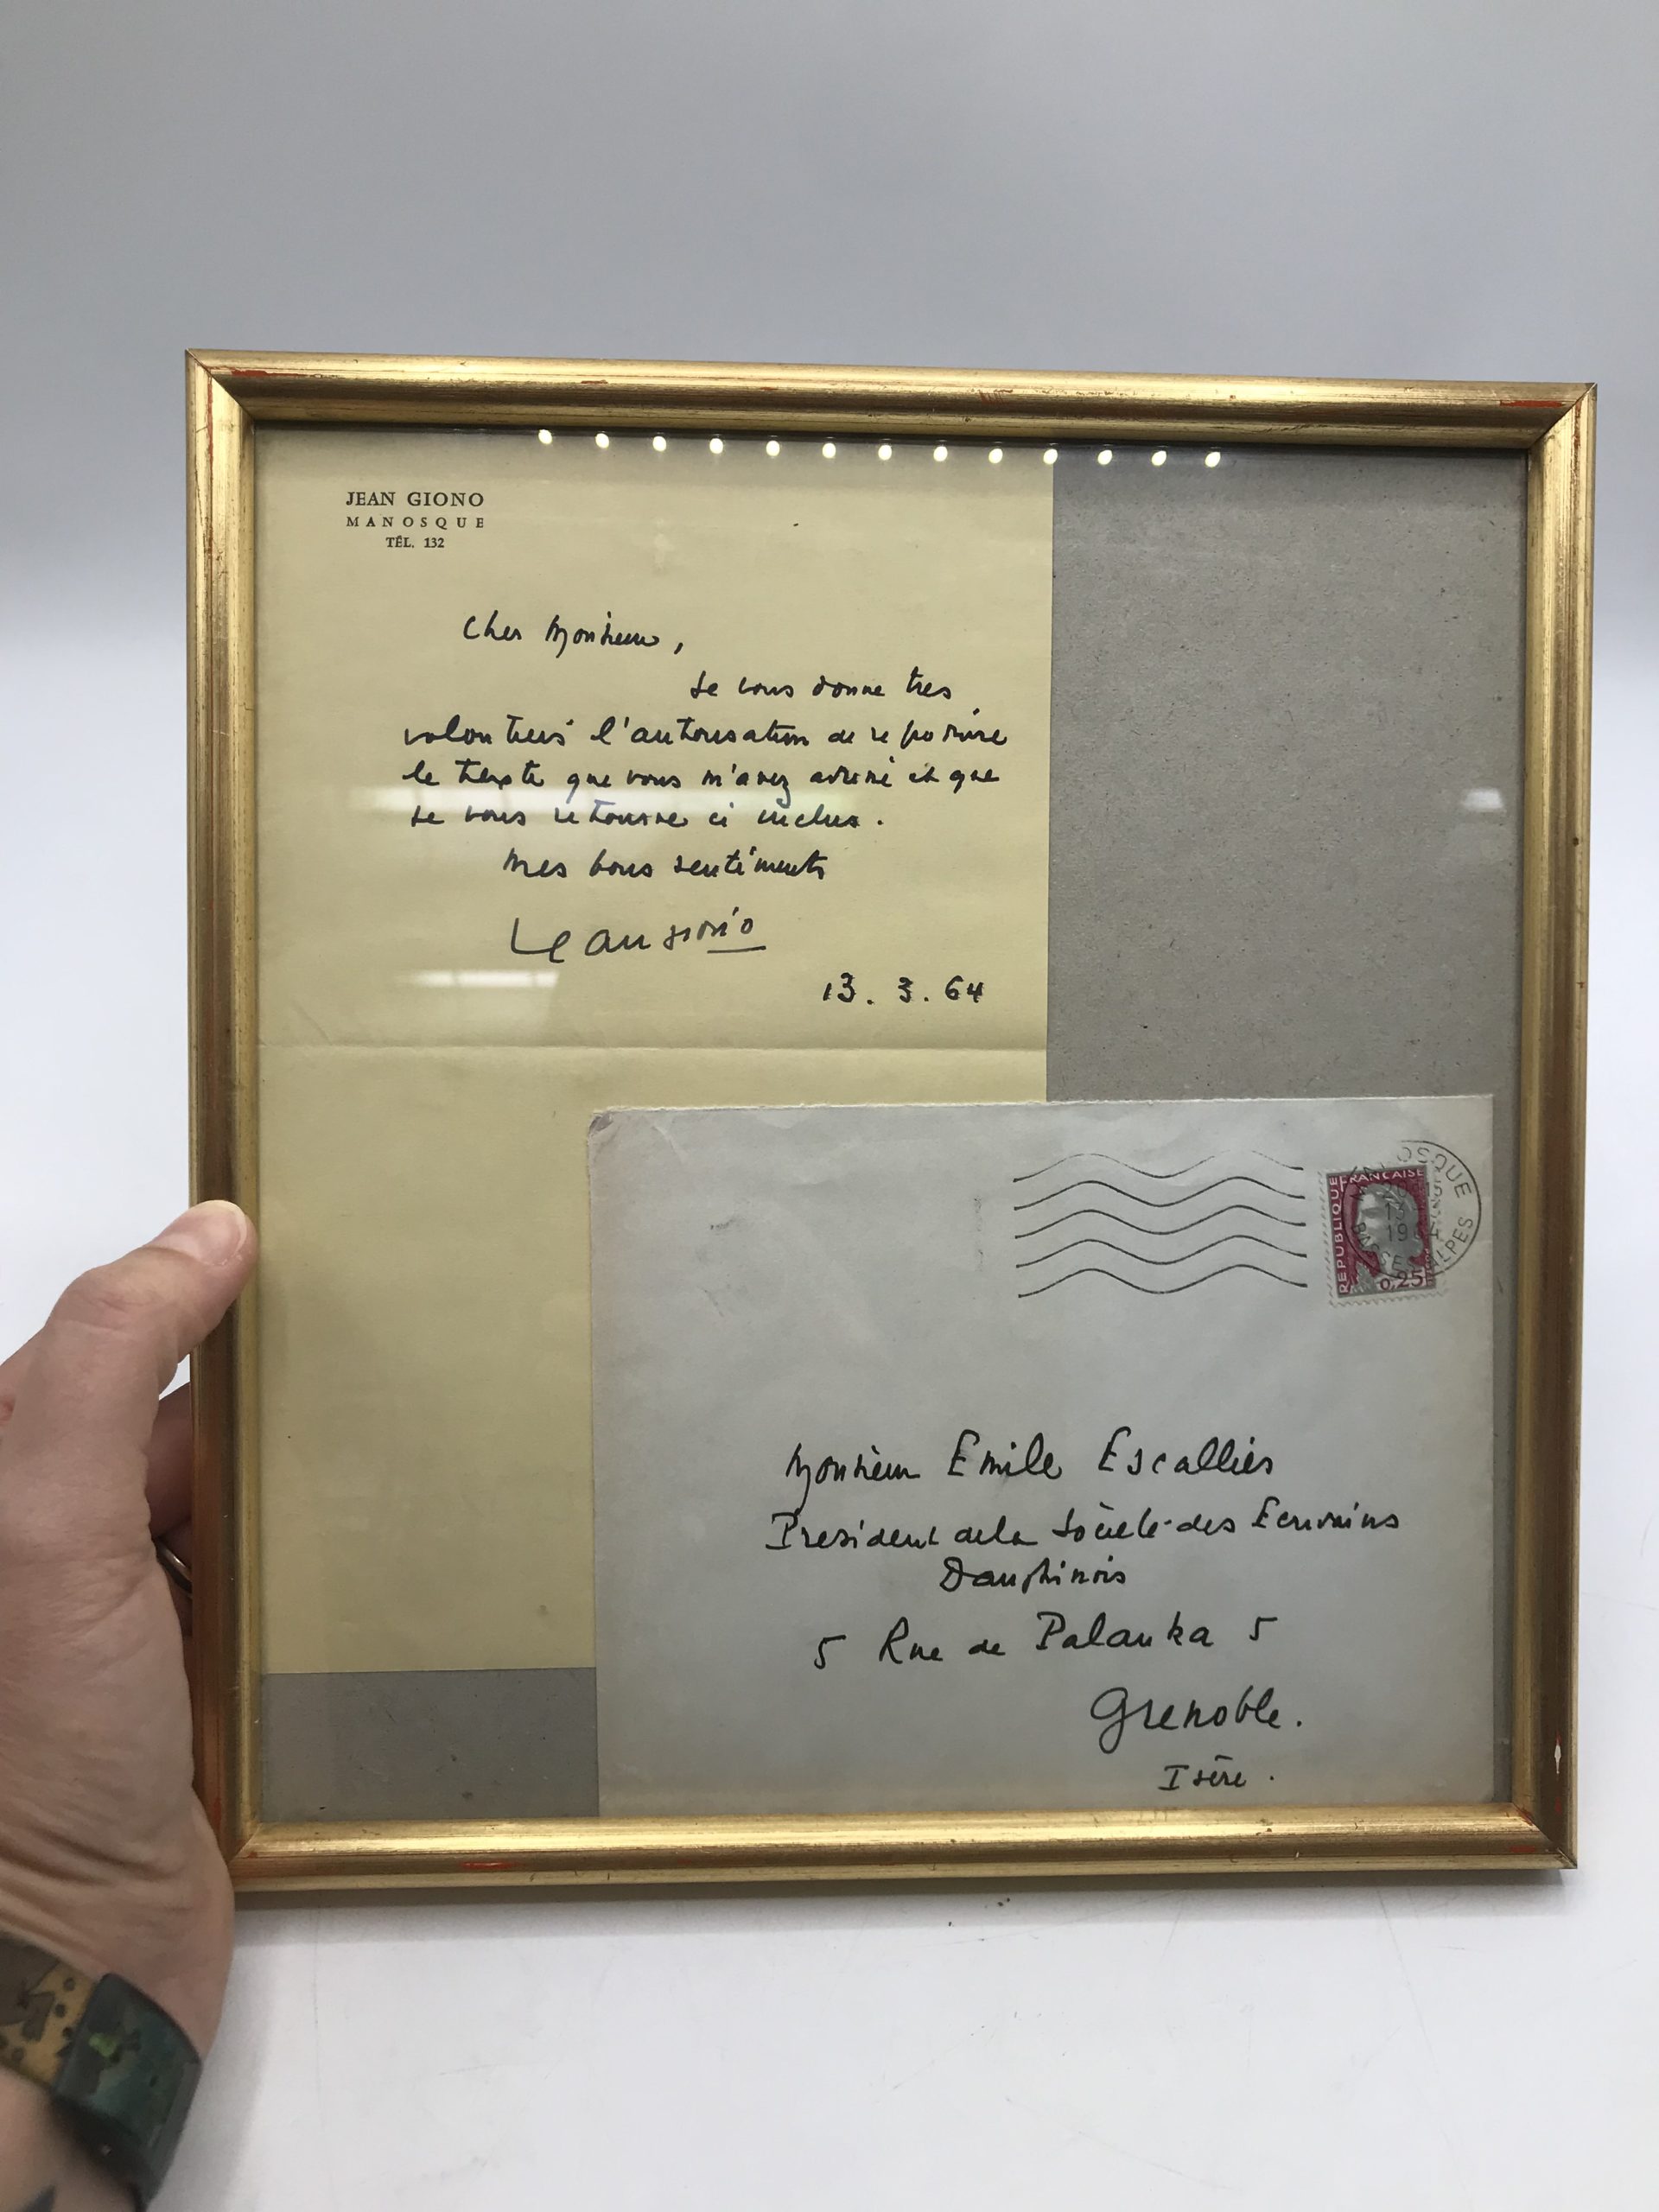 JEAN GIONO
MANOSQUE
TÉL. 132
Cher Monsieur,
Je vous donne tres
volontiers l'autorisation de reproduire
le texte que vous m'avez adressé et que
je vous retourne ci inclus.
Mes bons sentiments
Jean Giono
13. 3. 64
MANOSQUE
BASSES ALPES
REPUBLIQUE
FRANCAISE
0,25
Monsieur Emile Escallier
President de la Société des Ecrivains
Dauphinois
5 Rue de Palanka 5
Grenoble.
Isère.